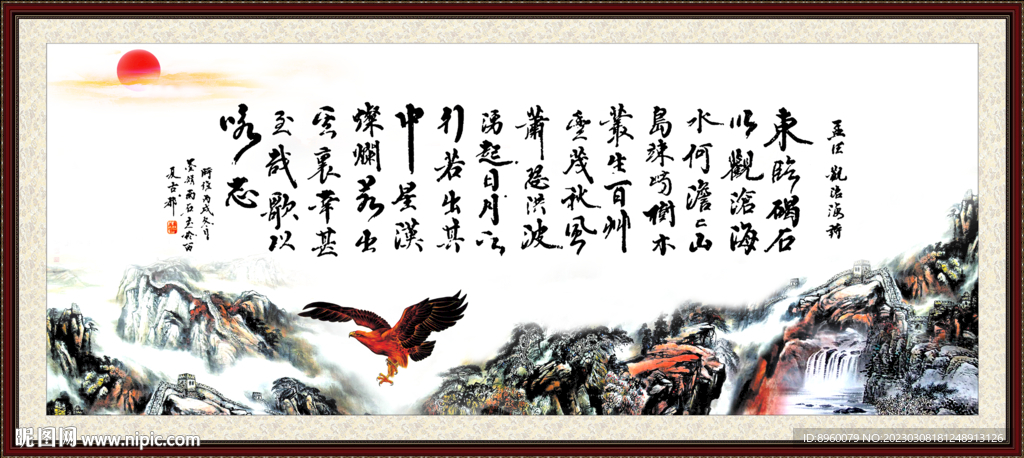 孟德 觀滄海詩
東臨碣石
以觀滄海
水何澹〻山
島竦峙樹木
叢生百艸
豐茂秋風
蕭瑟洪波
湧起日月之
行若出其
中星漢
燦爛若出
其裏幸甚
至哉歌以
詠志
時維丙戌冬月
昵图网 www.nipic.com
ID:8960079 NO:20230308181248913126